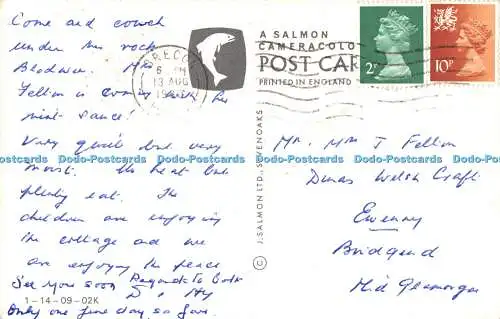 Come and couch
under his rock
Blodwen. Mrs
Fellon is coming with her
mint sauce!
Very quiet but very
moist. No heat but
plenty eat. The
children are enjoying
the cottage and we
are enjoying the peace
See you soon Regards to both
Only one fine day so far.
1-14-09-02K
A SALMON
CAMERACOLO
POST CAR
PRINTED IN ENGLAND
6 PM
13 AUG
2P
10P
J. SALMON LTD., SEVENOAKS ©
Mr. Mrs J Fellon
Dinas Welsh Craft
Ewenny
Bridgend
Mid Glamorgan
Dodo-Postcards Dodo-Postcards Dodo-Postcards Dodo-Postcards